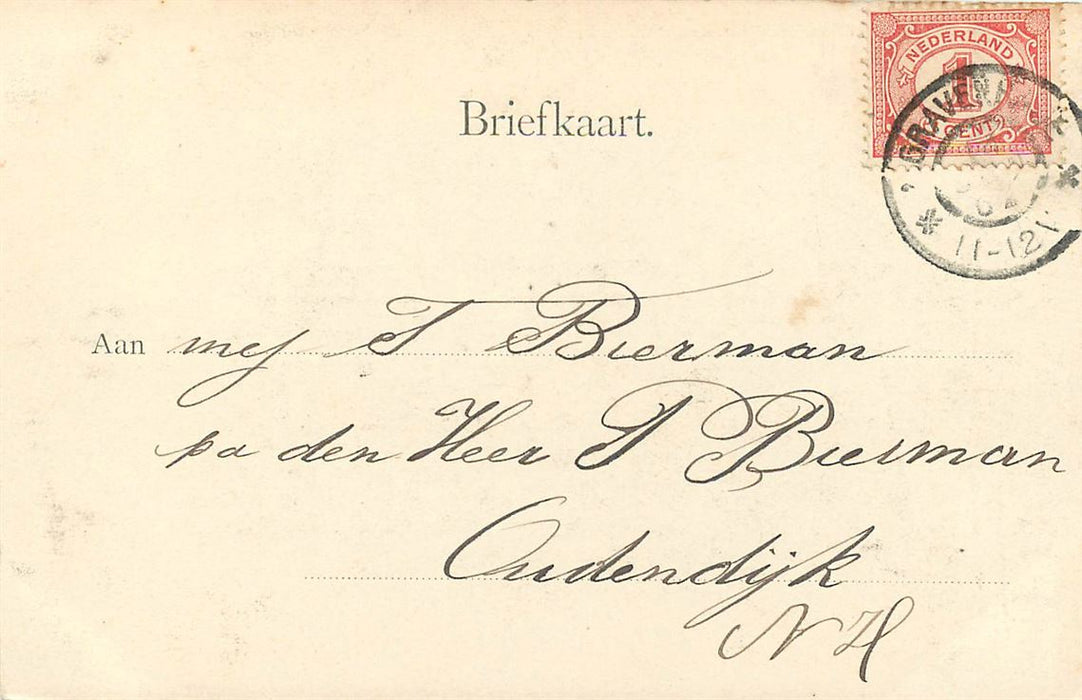 Briefkaart.
NEDERLAND
1
CENT
11-12
Aan mej T Bierman
pa den Heer P Bierman
Oudendijk
N H